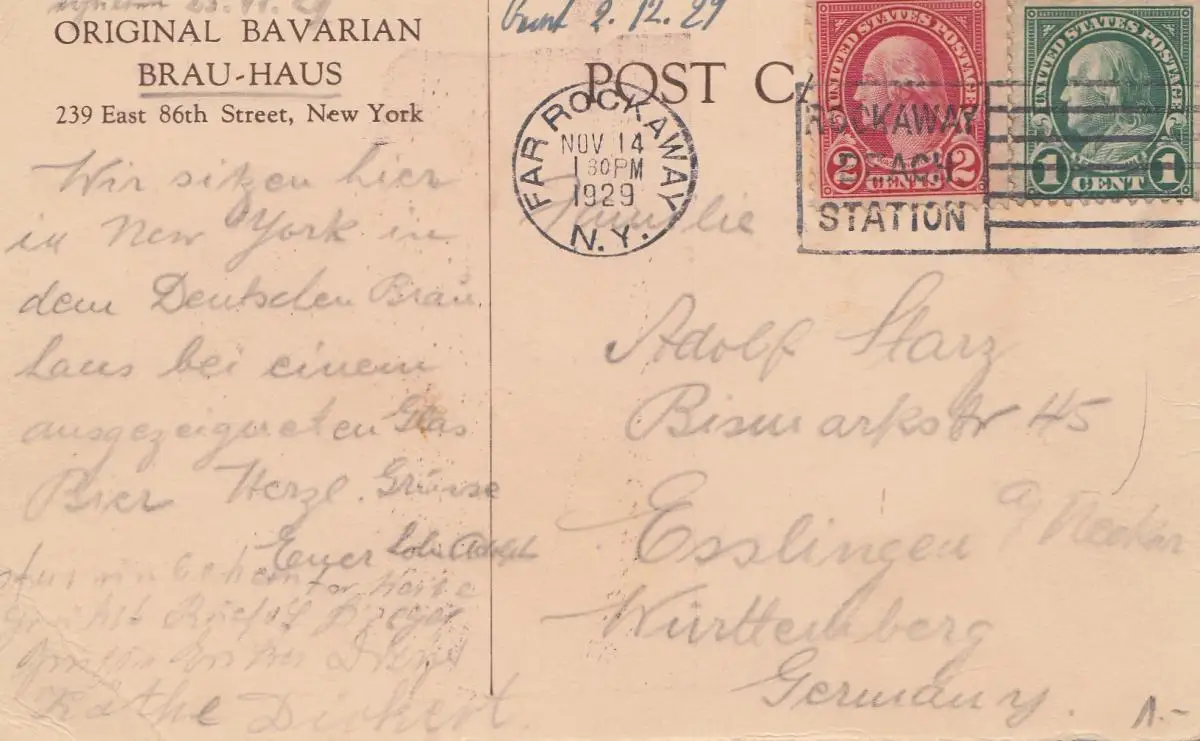 23.11.29
ORIGINAL BAVARIAN
BRAU-HAUS
239 East 86th Street, New York
Wir sitzen hier
in New York in
dem Deutschen Brau
haus bei einem
ausgezeigneten Glas
Bier Herzl. Grüsse
Euer Adolf
Käthe Dickert.
2.12.29
POST CA
FAR ROCKAWAY
NOV 14
1 30 PM
1929
N.Y.
UNITED STATES POSTAGE
2 CENTS 2
UNITED STATES POSTAGE
1 CENT 1
ROCKAWAY
BEACH
STATION
Familie
Adolf Starz
Bismarkstr 45
Esslingen a/Neckar
Württemberg
Germany.
1.-